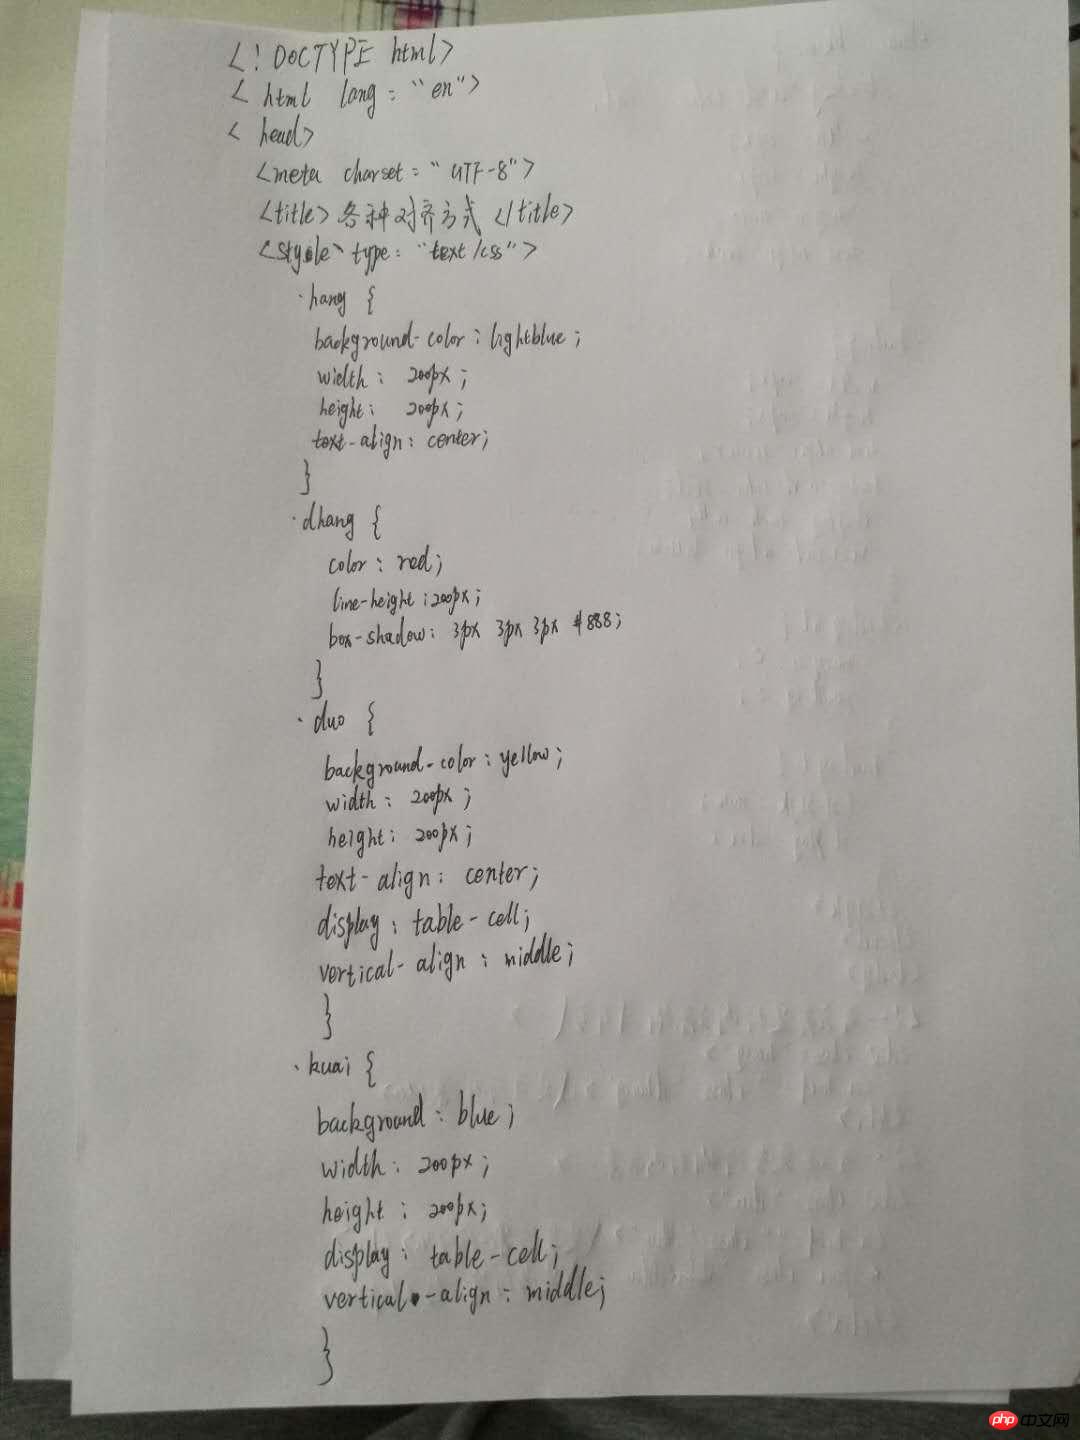 <!DOCTYPE html>
<html lang="en">
<head>
<meta charset="UTF-8">
<title>各种对齐方式</title>
<style type="text/css">
.hang {
background-color: lightblue;
width: 200px;
height: 200px;
text-align: center;
}
.dhang {
color: red;
line-height: 200px;
box-shadow: 3px 3px 3px #888;
}
.duo {
background-color: yellow;
width: 200px;
height: 200px;
text-align: center;
display: table-cell;
vertical-align: middle;
}
.kuai {
background: blue;
width: 200px;
height: 200px;
display: table-cell;
vertical-align: middle;
}
php 中文网